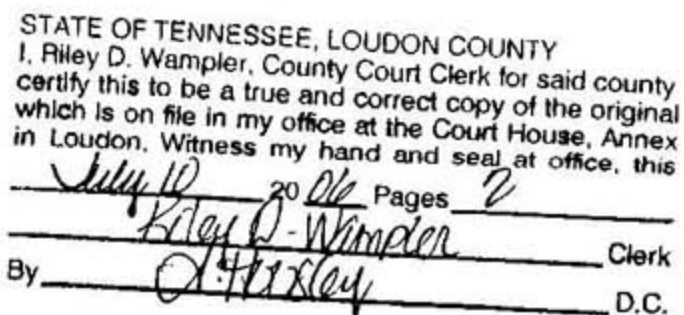 STATE OF TENNESSEE, LOUDON COUNTY
I, Riley D. Wampler, County Court Clerk for said county
certify this to be a true and correct copy of the original
which is on file in my office at the Court House, Annex
in Loudon. Witness my hand and seal at office, this
July 10 2006 Pages 2
Riley D. Wampler Clerk
By D.C.